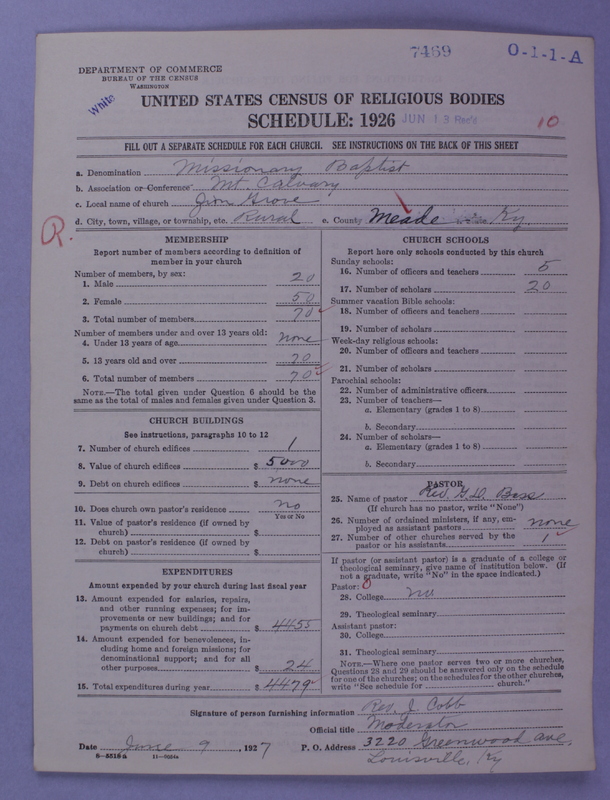 7469 O-1-1-A
DEPARTMENT OF COMMERCE
BUREAU OF THE CENSUS
WASHINGTON
White
UNITED STATES CENSUS OF RELIGIOUS BODIES
SCHEDULE: 1926 JUN 13 Rec'd 10
FILL OUT A SEPARATE SCHEDULE FOR EACH CHURCH. SEE INSTRUCTIONS ON THE BACK OF THIS SHEET
a. Denomination Missionary Baptist
b. Association or Conference Mt. Calvary
c. Local name of church Grove
d. City, town, village, or township, etc. Rural e. County Meade Ky.
R.
MEMBERSHIP
Report number of members according to definition of
member in your church
Number of members, by sex:
1. Male 20
2. Female 50
3. Total number of members 70
Number of members under and over 13 years old:
4. Under 13 years of age none
5. 13 years old and over 70
6. Total number of members 70
NOTE.—The total given under Question 6 should be the
same as the total of males and females given under Question 3.
CHURCH BUILDINGS
See instructions, paragraphs 10 to 12
7. Number of church edifices 1
8. Value of church edifices $ 5000
9. Debt on church edifices $ none
10. Does church own pastor's residence? no
Yes or No
11. Value of pastor's residence (if owned by
church) $
12. Debt on pastor's residence (if owned by
church) $
EXPENDITURES
Amount expended by your church during last fiscal year
13. Amount expended for salaries, repairs,
and other running expenses; for im-
provements or new buildings; and for
payments on church debt $ 4455
14. Amount expended for benevolences, in-
cluding home and foreign missions; for
denominational support; and for all
other purposes $ 24
15. Total expenditures during year $ 4479
CHURCH SCHOOLS
Report here only schools conducted by this church
Sunday schools:
16. Number of officers and teachers 5
17. Number of scholars 20
Summer vacation Bible schools:
18. Number of officers and teachers
19. Number of scholars
Week-day religious schools:
20. Number of officers and teachers
21. Number of scholars
Parochial schools:
22. Number of administrative officers
23. Number of teachers—
a. Elementary (grades 1 to 8)
b. Secondary
24. Number of scholars—
a. Elementary (grades 1 to 8)
b. Secondary
PASTOR
25. Name of pastor Rev. G.D. Bass
(If church has no pastor, write "None")
26. Number of ordained ministers, if any, em-
ployed as assistant pastors none
27. Number of other churches served by the
pastor or his assistants 1
If pastor (or assistant pastor) is a graduate of a college or
theological seminary, give name of institution below. (If
not a graduate, write "No" in the space indicated.)
Pastor: 0
28. College no
29. Theological seminary
Assistant pastor:
30. College
31. Theological seminary
NOTE.—Where one pastor serves two or more churches,
Questions 28 and 29 should be answered only on the schedule
for one of the churches; on the schedules for the other churches,
write "See schedule for church."
Signature of person furnishing information Rev. J. Cobb
Official title Moderator
Date June 9, 1927 P. O. Address 3220 Greenwood ave.
8—5518a 11—9024a Louisville, Ky